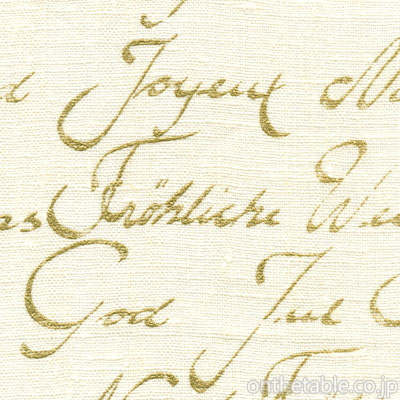 Joyeux
Fröhliche We
God Jul
onthetable.co.jp